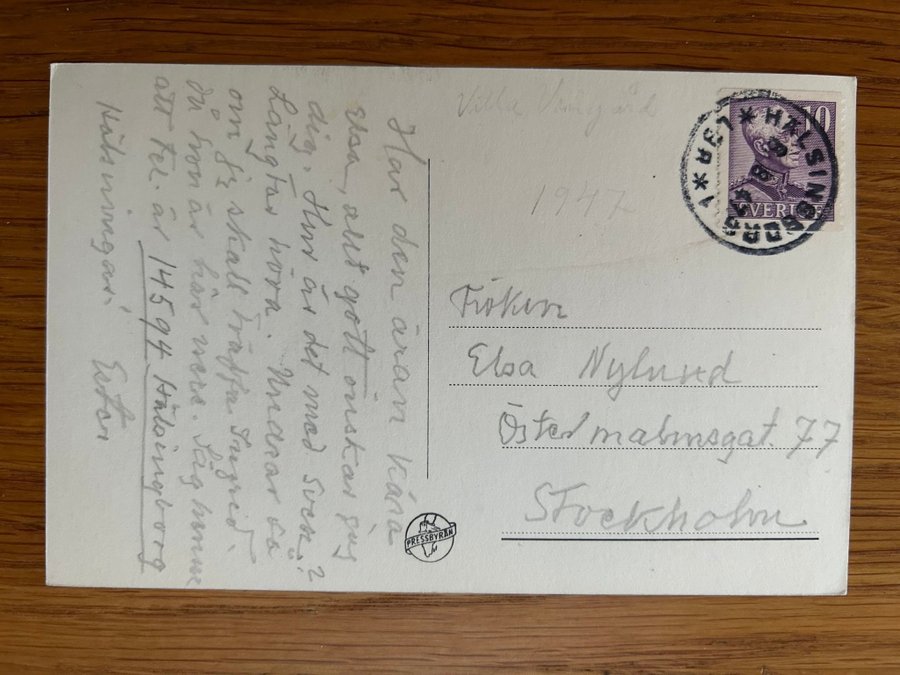 Har den äran kära
Elsa, allt gott önskar jag
dig. Hur är det med Sven?
Längtar höra. Undrar så
om jag skall träffa Ingrid
då hon är här nere. Säg henne
att tel. är 14594 Hälsingborg
Hälsningar!
Ester
Villa
1947
Fröken
Elsa Nylund
Östermalmsgat. 77
Stockholm
PRESSBYRÅN
HÄLSINGBORG 1
10
SVERIGE